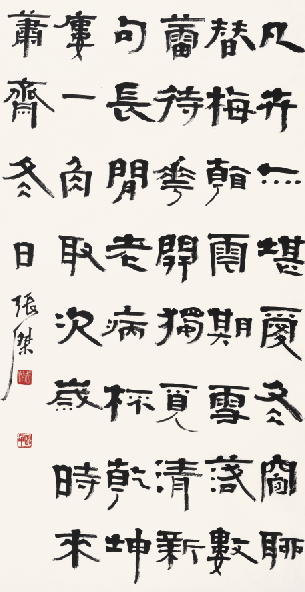 凡卉亦堪愛冬窗聊
替梅看雲期雪落數
蕾待華開獨覓清新
句長閒老病杯乾坤
廔一角取次歲時來
蕭齋冬日張傑